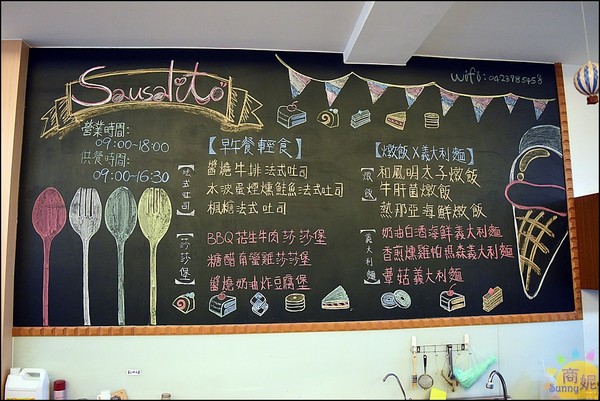 Sausalito
wifi:0423785458
營業時間:
09:00~18:00
供餐時間:
09:00~16:30
【早午餐輕食】
【法式吐司】
醬燒牛排法式吐司
水波蛋煙燻鮭魚法式吐司
楓糖法式吐司
【莎莎堡】
BBQ花生牛肉莎莎堡
糖醋角螢雞莎莎堡
醬燒奶油炸豆腐堡
【燉飯X義大利麵】
【燉飯】
和風明太子燉飯
牛肝菌燉飯
熱那亞海鮮燉飯
【義大利麵】
奶油白酒海鮮義大利麵
香煎燻雞帕瑪森義大利麵
蕈菇義大利麵
商妮
Sunny